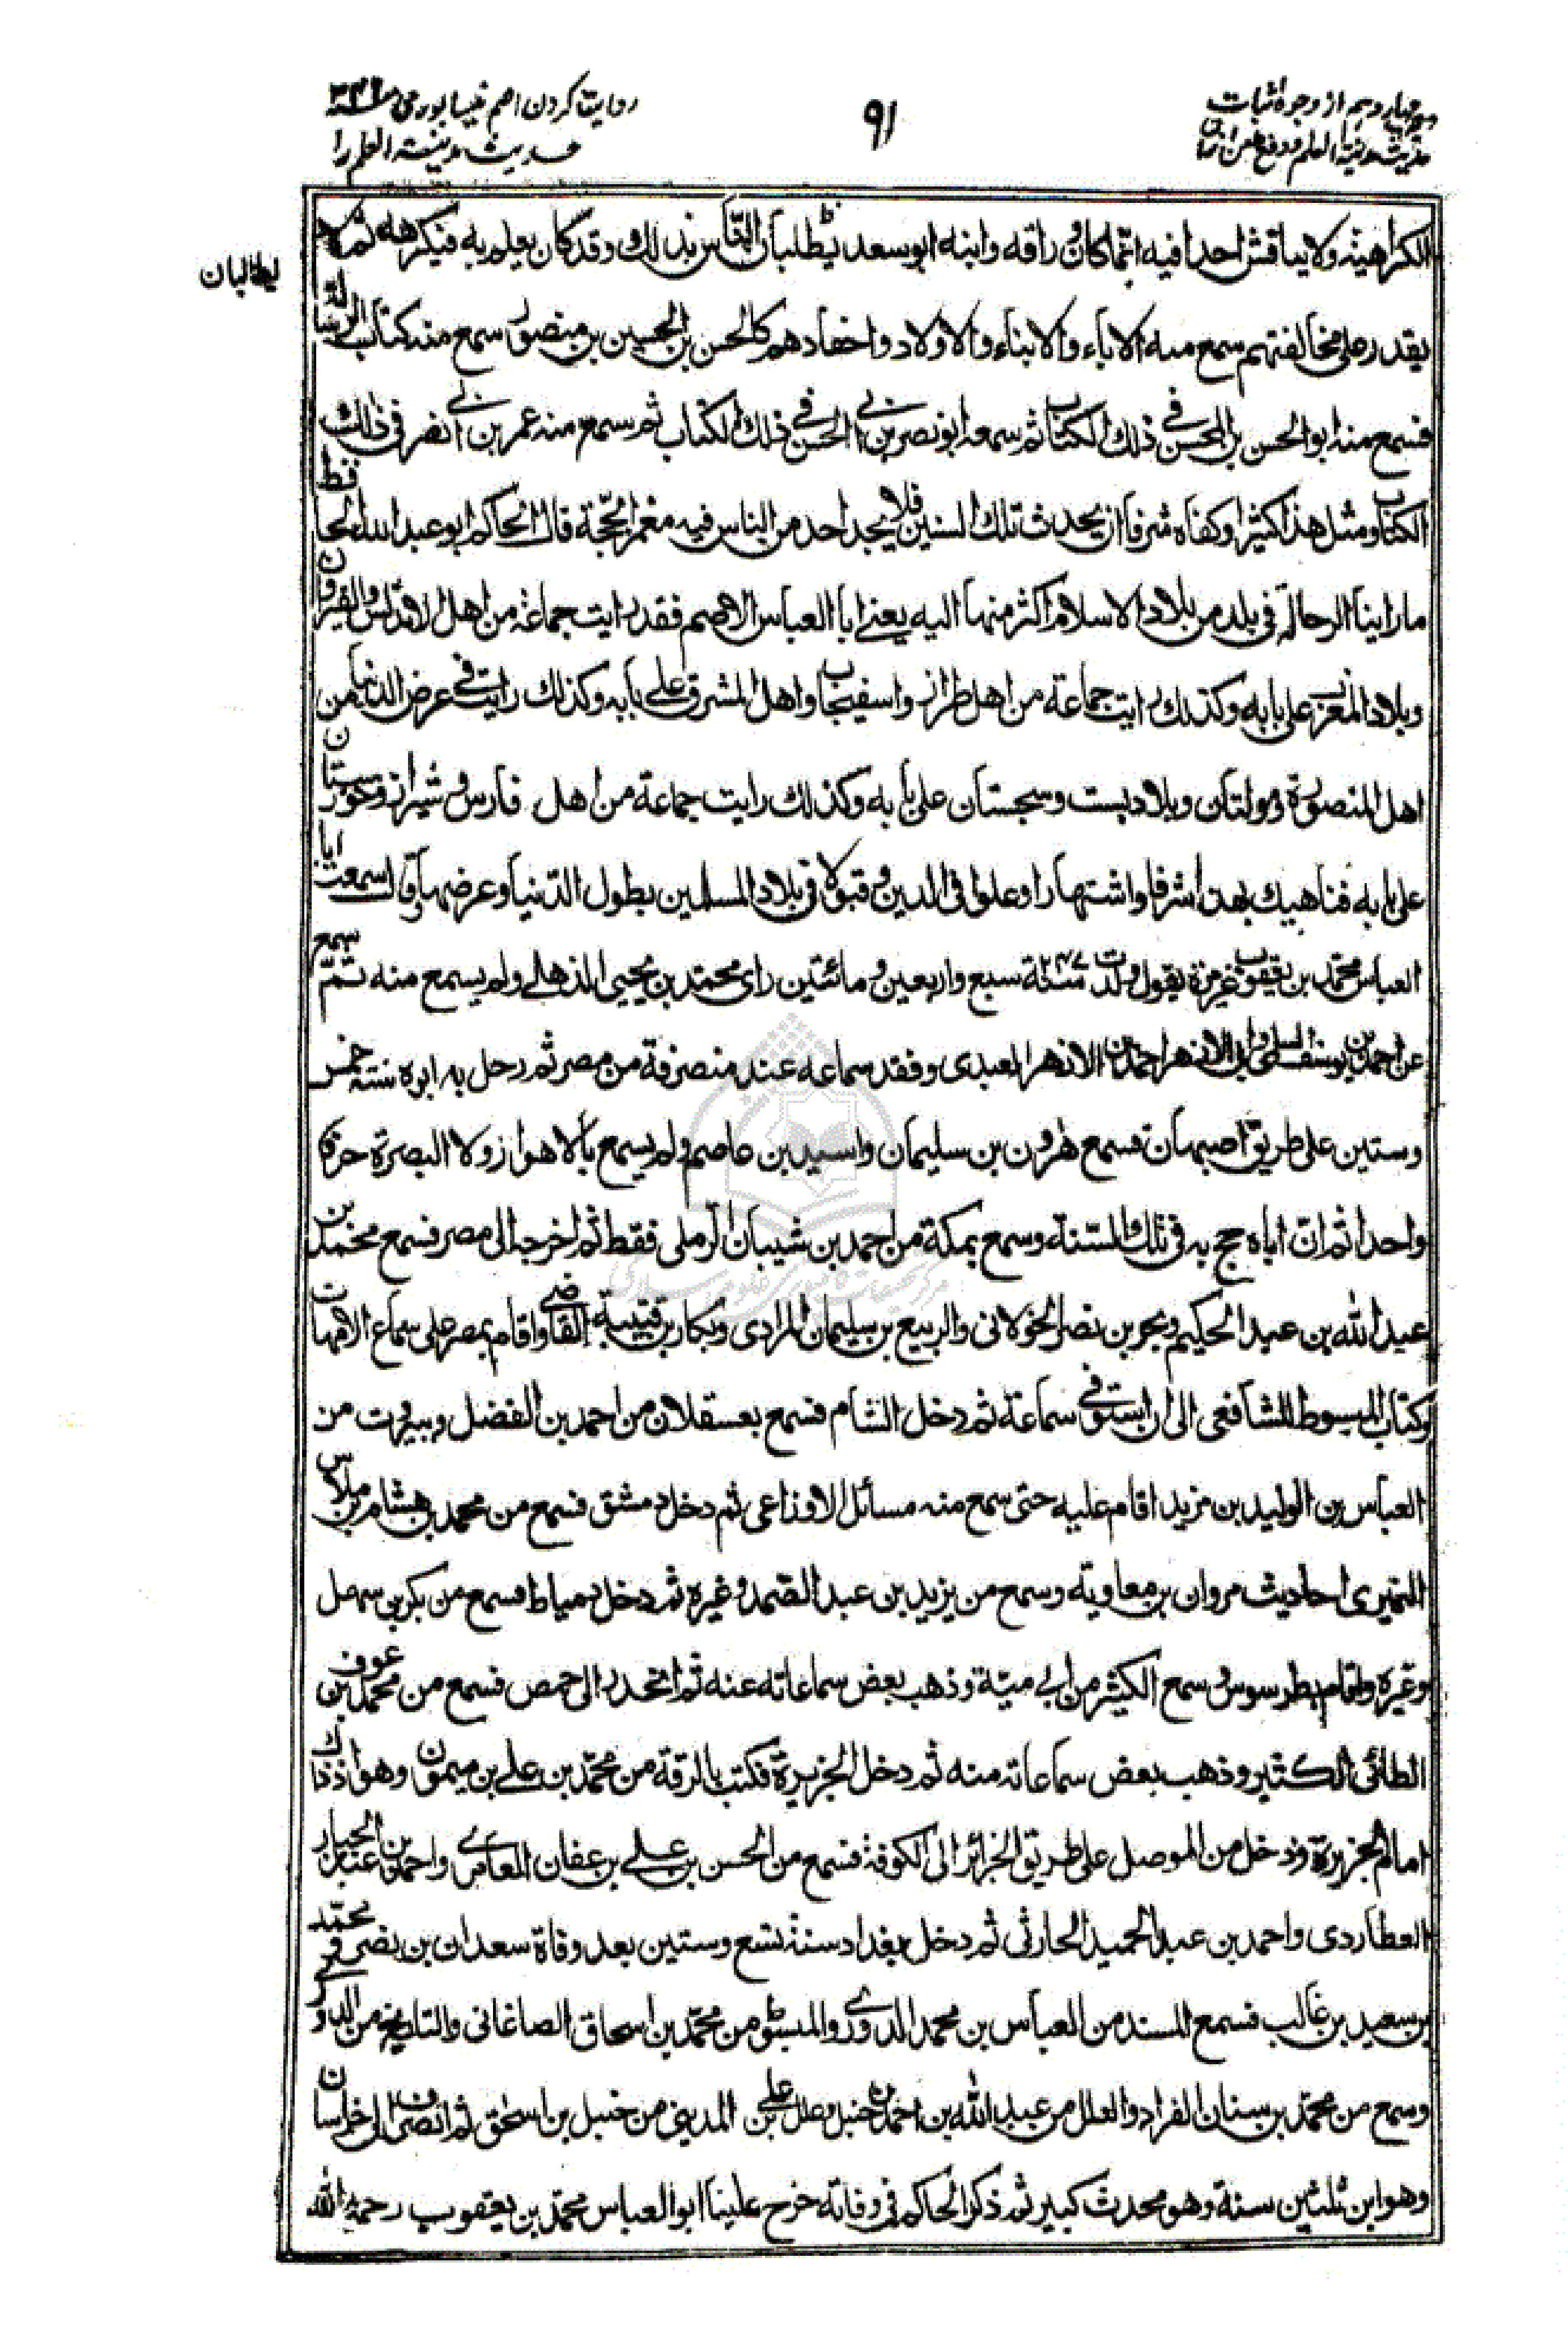 وجه چهاردهم از وجوه اثبات
حدیث مدینة العلم و دفع طعن
٩١
روایت کردن اصم نیسابوری
حدیث مدینة العلم را
الكراهية ولا يناقش احدا فيه انما كان وراقه وابنه ابو سعد يطلبان الناس بذلك وقد كان يعلم به فيكرهه ثم لا
یطالبان
يقدر على مخالفتهم سمع منه الاباء والابناء والاولاد واحفادهم كالحسن بن الحسين بن منصور سمع منه كتاب الرسالة
فسمع منه ابو الحسن بن المحسن في ذلك الكتاب ثم سمعه ابو نصر بن ابي الحسن في ذلك الكتاب ثم سمع منه عمر بن ابي نصر في ذلك
الكتاب ومثل هذا كثير وكفاه شرفا ان يحدث تلك السنين فلا يجد احد من الناس فيه مغمزا بحجة قال الحاكم ابو عبد الله الحافظ
ما راينا الرحالة في بلد من بلاد الاسلام اكثر منها اليه يعني ابا العباس الاصم فقد رايت جماعة من اهل الاندلس والقيروان
وبلاد المغرب على بابه وكذلك رايت جماعة من اهل طراز واسفيجاب واهل المشرق على بابه وكذلك رايت في عرض الدنيا من
اهل المنصورة ومولتان وبلاد بست وسجستان على بابه وكذلك رايت جماعة من اهل فارس وشيراز وخوزستان
على بابه فناهيك بهذا شرفا واشتهارا وعلوا في الدين وقبولا في بلاد المسلمين بطول الدنيا وعرضها وقال سمعت ابا
العباس محمد بن يعقوب غير مرة يقول ولدت ٢٤٧ سنة سبع واربعين ومائتين راى محمد بن يحيى الذهلي ولم يسمع منه ثم سمع
عن احمد بن يوسف السلمي وابي الازهر احمد بن الازهر العبدي وفقد سماعه عند منصرفه من مصر ثم رحل به ابوه سنة خمس
وستين على طريق اصبهان فسمع هرون بن سليمان واسيد بن عاصم ولم يسمع بالاهواز ولا البصرة حرفا
واحدا ثم ان اباه حج به في تلك السنة وسمع بمكة من احمد بن شيبان الرملي فقط ثم اخرجه الى مصر فسمع محمد بن
عبد الله بن عبد الحكيم وبحر بن نصر الخولاني والربيع بن سليمان المرادي وبكار بن قتيبة القاضي واقام بمصر على سماع الامهات
وكتاب المبسوط للشافعي الى ان استوفى سماعه ثم دخل الشام فسمع بعسقلان من احمد بن الفضل وبيروت من
العباس بن الوليد بن مزيد اقام عليه حتى سمع منه مسائل الاوزاعي ثم دخل دمشق فسمع من محمد بن هشام بن ملاس
النميري احاديث مروان بن معاوية وسمع من يزيد بن عبد الصمد وغيره ثم دخل دمياط فسمع من بكر بن سهل
وغيره واقام بطرسوس وسمع الكثير من ابي امية وذهب بعض سماعاته عنه ثم انحدر الى حمص فسمع من محمد بن عوف
الطائي الكثير وذهب بعض سماعاته منه ثم دخل الجزيرة فكتب بالرقة من محمد بن علي بن ميمون وهو اذ ذاك
امام الجزيرة ودخل من الموصل على طريق الجزائر الى الكوفة فسمع من الحسن بن علي بن عفان العامري واحمد بن عبد الجبار
العطاردي واحمد بن عبد الحميد الحارثي ثم دخل بغداد سنة تسع وستين بعد وفاة سعدان بن نصر ومحمد
بن سعيد بن غالب فسمع المسند من العباس بن محمد الدوري والمبسوط من محمد بن اسحاق الصاغاني والتاريخ من الدوري
وسمع من محمد بن سنان القزاز والعلل من عبد الله بن احمد بن حنبل وعلل علي بن المديني من حنبل بن اسحق ثم انصرف الى خراسان
وهو ابن ثلثين سنة وهو محدث كبير ثم ذكر الحاكم في وفاته خرج علينا ابو العباس محمد بن يعقوب رحمه الله